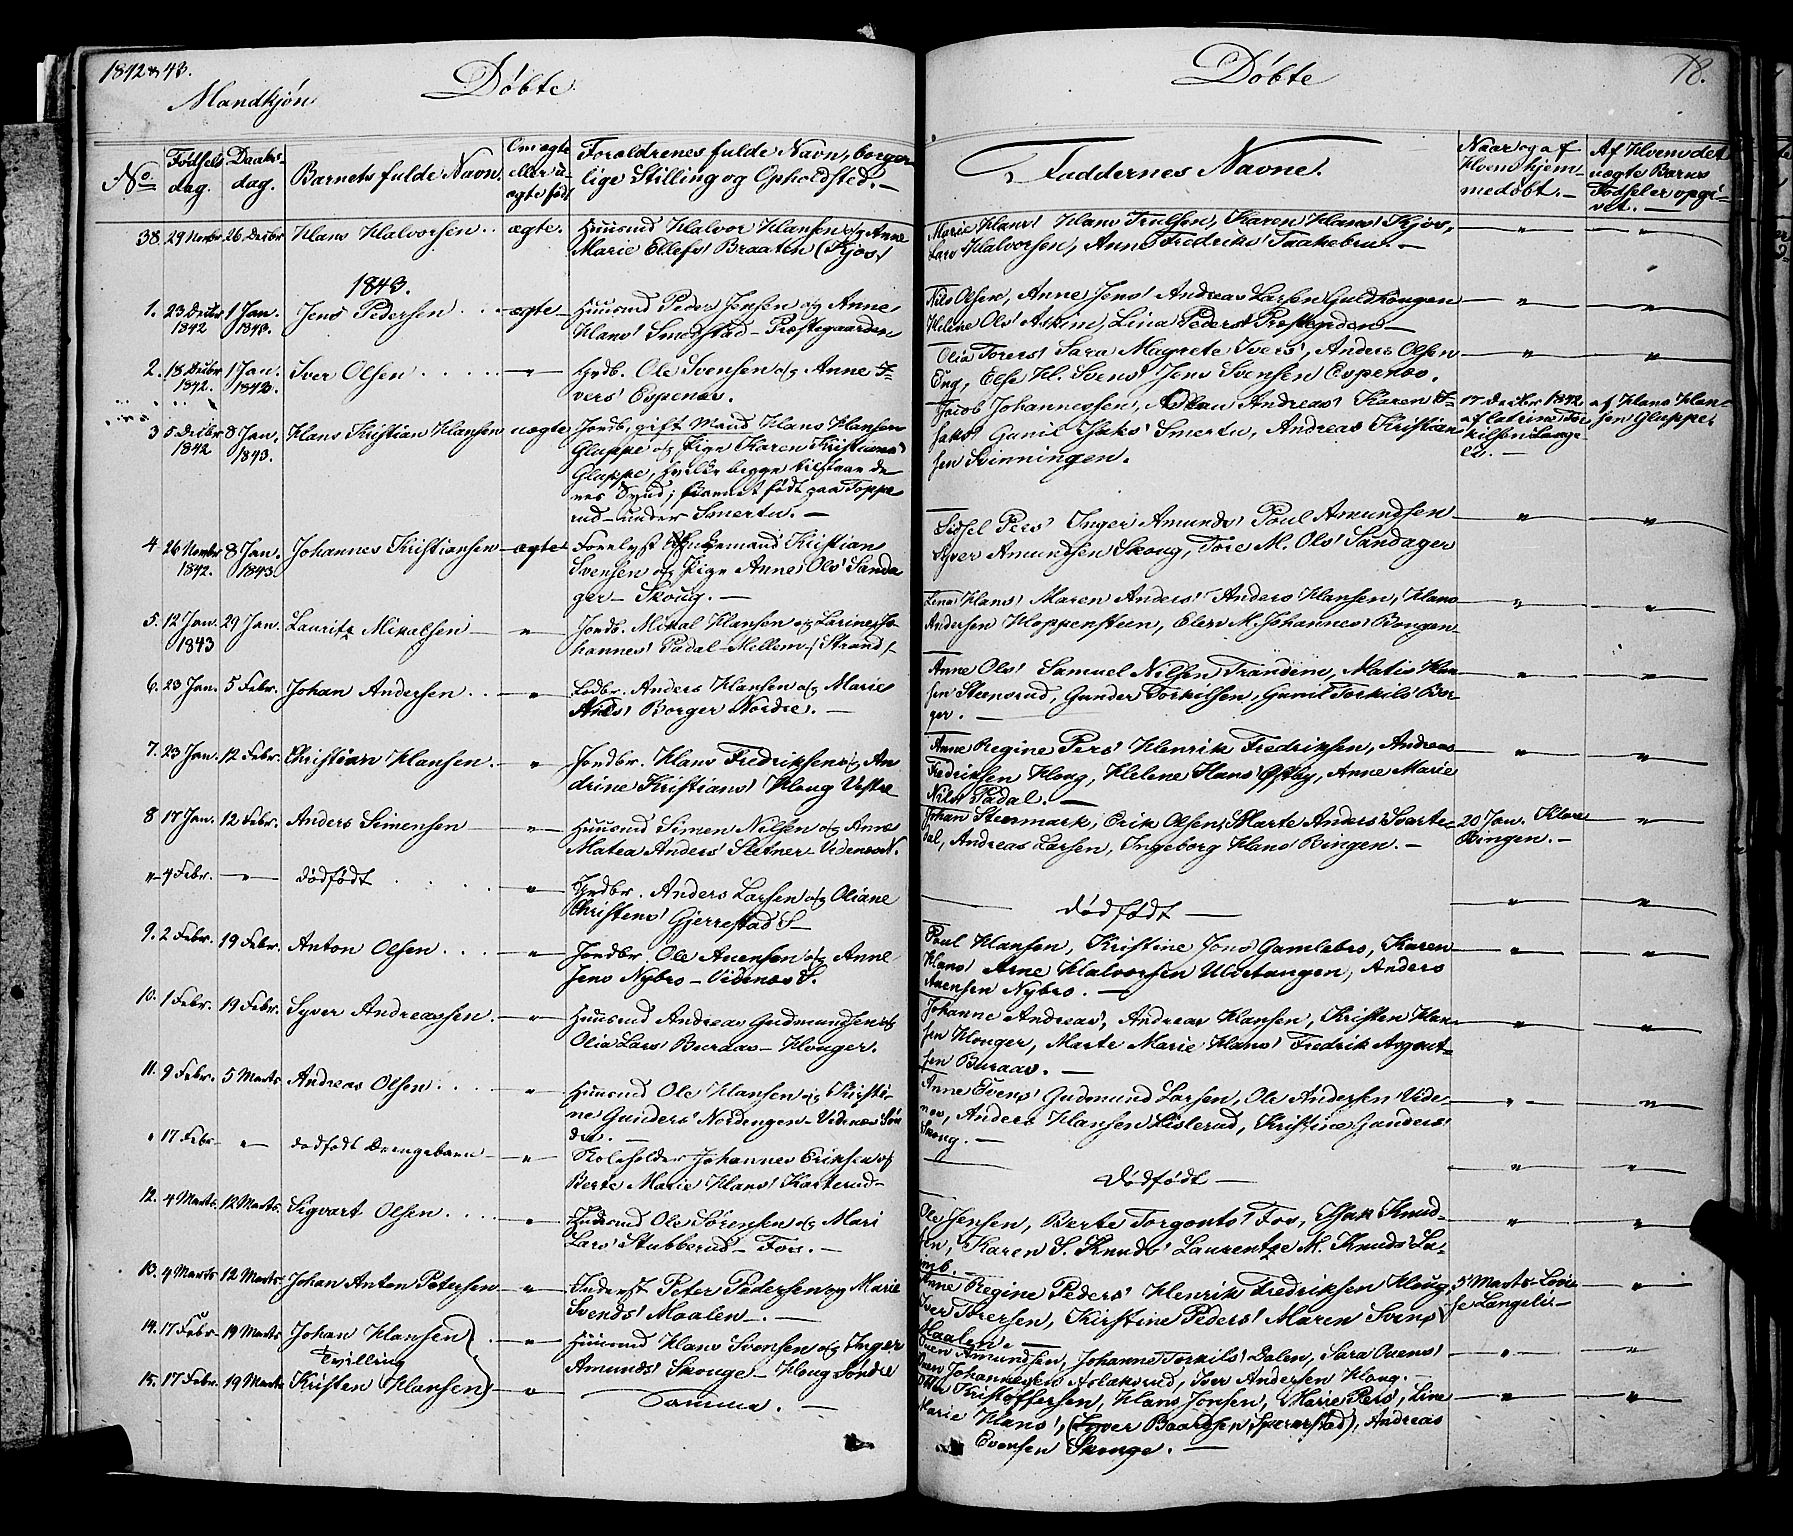 1842 & 43.
Mandkjøn
Døbte
Døbte
78.
No
Fødsels
dag.
Daabs-
dag.
Barnets fulde Navn.
Om ægte
eller u-
ægte født
Forældrenes fulde Navn, borger
lige Stilling og Opholdsted.
Faddernes Navne.
Naar og af
Hvem hjem-
medøbt.
Af Hvem det
uægte Barns
Fødsel er opgi-
vet.
38 29 Novbr 26 Decbr Hans Halvorsen ægte. Huusmd Halvor Hansen og Anne
Marie Ellefs' Braaten (Kjos)
Marie Hans' Hans Trulsen, Karen Hans' Kjos,
Lars Halvorsen, Anne Fredriks' Taakebrut
1843.
1. 23 Decbr 1842 1 Jan. 1843. Jens Pedersen ægte Huusmd Peder Jensen og Anne
Hans' Smedstad - Præstegaarden
Nils Olsen, Anne Jens' Andreas Larsen Guldkongen
Helene Ols' Askim, Lina Peders'
2. 18 Decbr 1842. 1 Jan. 1843. Iver Olsen " Grdb. Ole Svensen og Anne I-
vers' Espenæs.
Olia Torers' Sara Magrete Ivers', Anders Olsen
Eng, Else H. Svens' Jens Svensen Espenæs.
3 5 Decbr 1842 8 Jan. 1843. Hans Kristian Hansen uægte Jordb. gift Mand Hans Hansen
Glappe og Pige Karen Kristians'
Glappe, hvilke begge tilstaae de-
res Synd; Barnet født paa Toppe
rud under Smertu.
Jacob Johannessen, Andreas' Karen I-
saks' Gunil Isaks' Smertu, Andreas Kristian
sen Svinningen.
17 Decbr 1842
af Catrine Tor
kilsen Lange-
af Hans Han-
sen Glappe.
4 26 Novbr 1842. 8 Jan. 1843. Johannes Kristiansen ægte Forelyst Ungemand Kristian
Svensen og Pige Anne Ols' Sanda
ger - Skoug.
Sidsel Pers' Inger Amunds' Poul Amundsen
Syver Amundsen Skoug, Tore M. Ols' Sandager
5. 12 Jan. 1843 29 Jan. Lauritz Mikalsen " Jordb. Mikal Hansen og Larine Jo
hannes' Padal Mellem (Strand)
Lina Hans' Maren Anders' Anders Hansen, Hans
Andersen Kloppensteen, Elen M. Johannes' Borgen
6. 23 Jan. 5 Febr. Johan Andersen " Lodbr. Anders Hansen og Marie
Borger Nordre.
Anne Ols' Samuel Nilsen Trandem, Matis Han
sen Steensrud, Gunder Torkilsen, Gunil Torkils' Bor-
ger.
7. 23 Jan. 12 Febr. Christian Hansen. " Jordbr. Hans Fredriksen og An
drine Kristians' Houg Vestre
Anne Regine Pers' Henrik Fredriksen, Andreas
Fredriksen Houg, Helene Hans' Østby, Anne Marie
Nils' Padal.
8 17 Jan. 12 Febr. Anders Simensen " Huusmd Simen Nilsen og Anne
Matea Anders' Sletner - Videnæs N.
Johan Steenmark, Erik Olsen, Marte Anders' Svarte-
dal, Andreas Larsen, Ingeborg Hans' Bingen.
20 Jan.
Bingen.
" 4 Febr. " dødfødt " Grdbr. Anders Larsen og Oliane
Christens' Gjerrestad S
dødfødt
9. 2 Febr. 19 Febr. Anton Olsen " Jordbr. Ole Auensen og Anne
Jens Nybro - Videnæs S.
Poul Hansen, Kristine Jens' Gamlebro, Karen
Hans' Arne Halvorsen Ulvetangen, Anders
Auensen Nybro.
10. 1 Febr. 19 Febr. Syver Andreassen. " Huusmd Andreas Gudmundsen og
Olia Lars' Buraas - Houger.
Johanne Andreas', Andreas Hansen, Kristen Han-
sen Houger, Marte Marie Hans' Fredrik Argout-
sen Buraas.
11. 9 Febr. 5 Marts Andreas Olsen " Huusmd Ole Hansen og Kirsti-
ne Gunders' Nordengen - Videnæs Søn
dre.
Anne Evens' Gudmund Larsen, Ole Andersen Vide-
næs, Anders Hansen Lislerud, Kristine Gunders'
Skoug.
" 17 Febr. " dødfødt Drengebarn " Skoleholder Johannes Eriksen og
Berte Marie Hans' Karterud
dødfødt
12. 4 Marts. 12 Marts. Sigvart Olsen " Huusmd Ole Sørensen og Mari
Lars' Stubberud - Fos.
Ole Jensen, Berte Torgonts' Fos, Isak Knud-
sen, Karen S. Knuds' Laurentze M. Knuds' La-
13. 4 Marts 12 Marts Johan Anton Petersen " Inderst Peter Pedersen og Marie
Svends' Moalen.
Anne Regine Peders' Henrik Fredriksen Houg,
Iver Torersen, Kirstine Peders' Maren Sørens'
Maalen.
5 Marts
Langeli.
14. 17 Febr. 19 Marts Johan Hansen " Huusmd Hans Svensen og Inger
Amunds' Skouge - Houg Søndre
Tvilling
Even Amundsen, Johanne Torkils' Dalen, Sara Ouens'
Johannessen Aslaksrud, Iver Andersen Houg.
15. 17 Febr. 19 Marts Kristen Hansen " Samme.
Kristoffersen, Hans Jonsen, Marie Pers', Line
Marie Hans', (Syver Baardsen, Sperrestad), Andreas
Evensen Skouge.